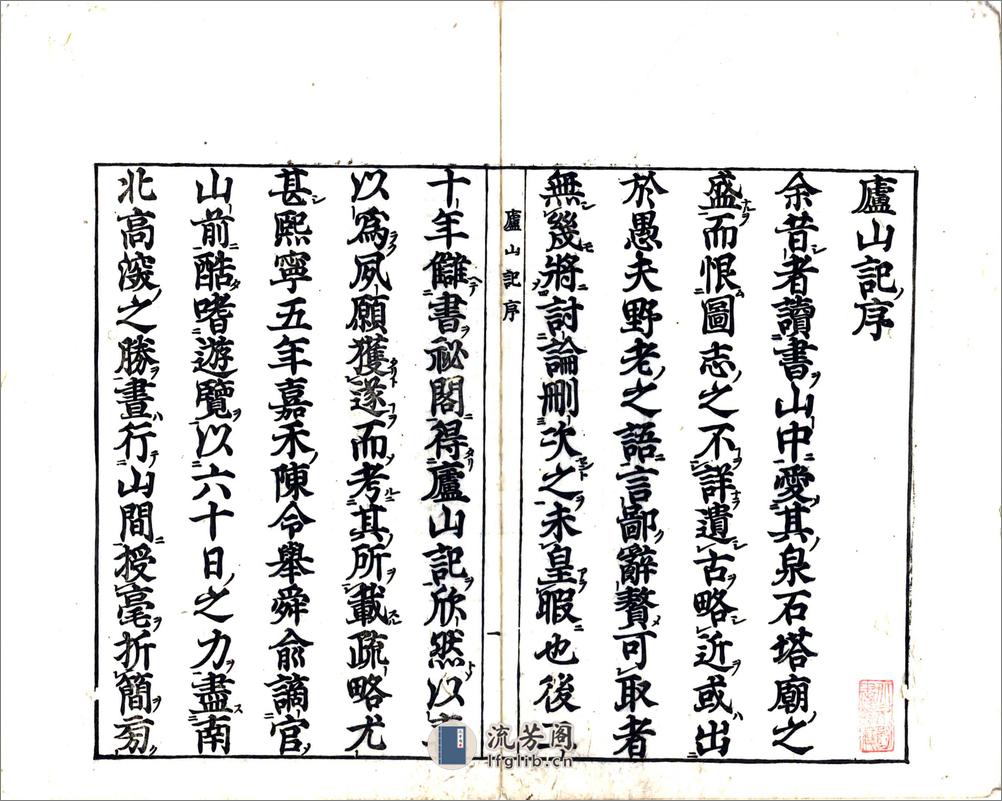 廬山記序
余昔者讀書山中愛其泉石塔廟之
盛而恨圖志之不詳遺古略近或出
於愚夫野老之語言鄙辭贅可取者
無幾將討論刪次之未皇暇也後
廬山記序
一
十年讎書祕閣得廬山記欣然以
以為夙願獲遂而考其所載疏略尤
甚熙寧五年嘉禾陳令舉舜俞謫官
山前酷嗜遊覽以六十日之力盡南
北高深之勝晝行山間授毫折簡旁
流芳阁
lfglib.cn